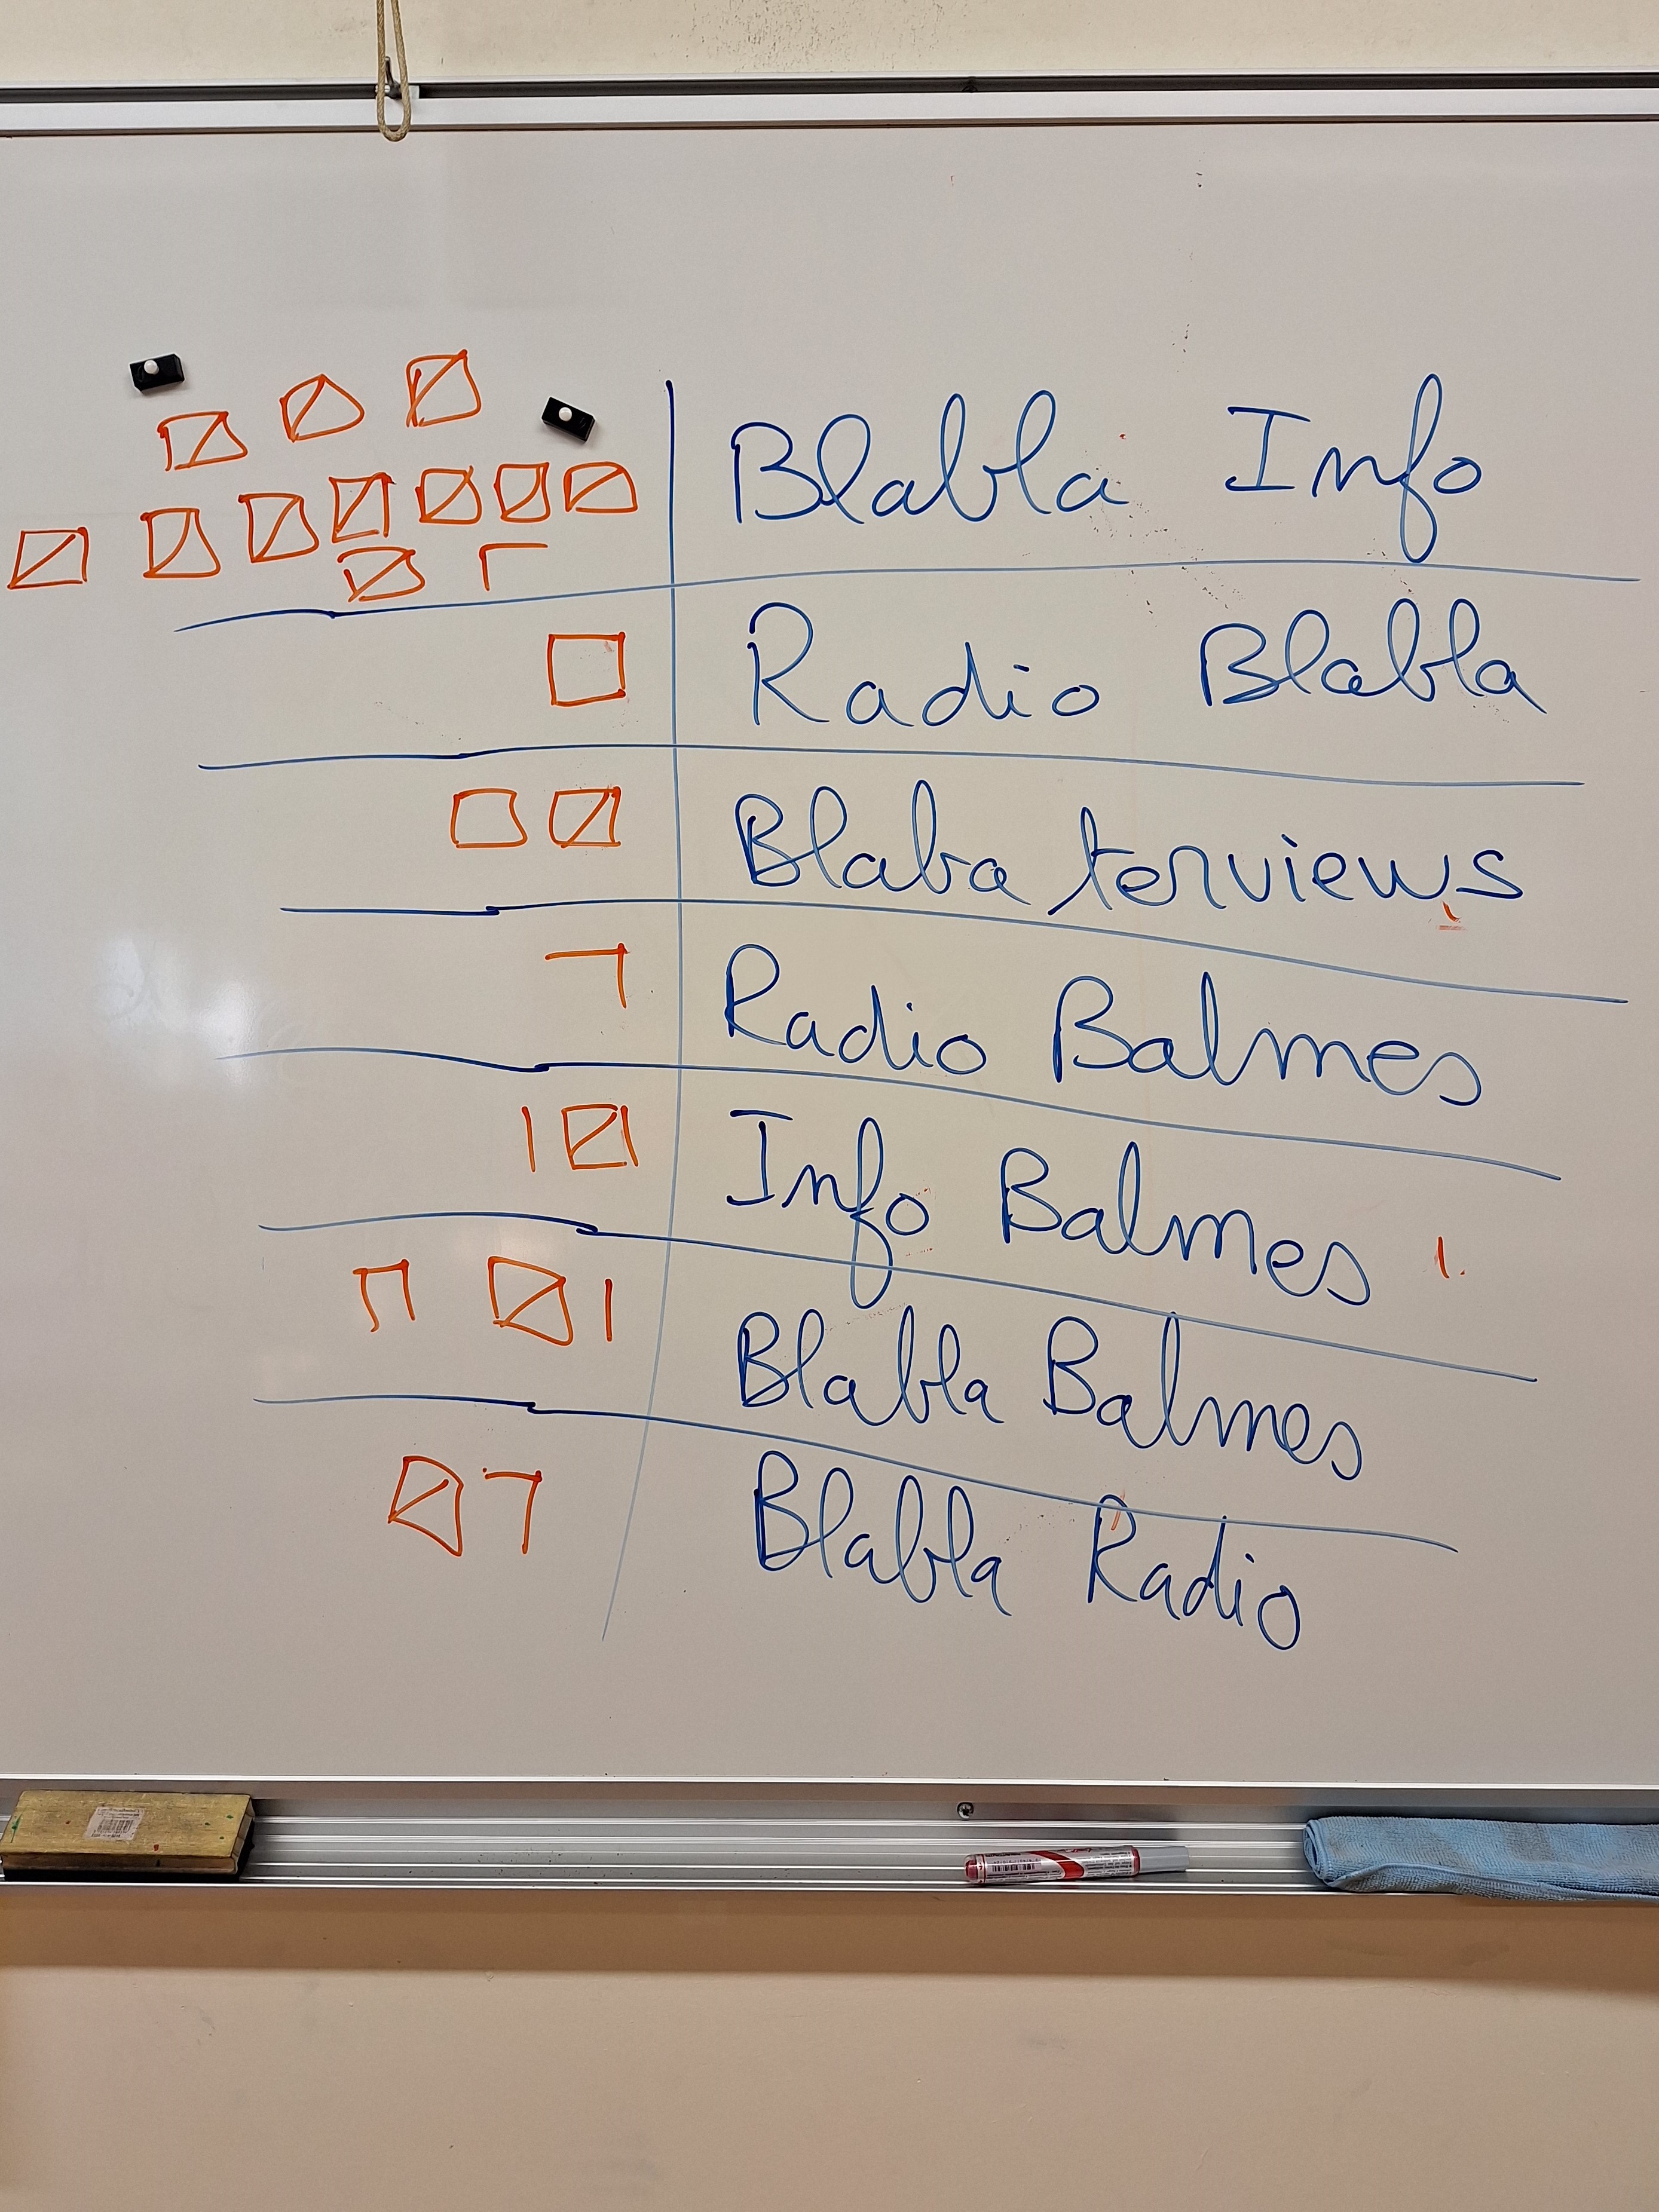 Blabla Info
Radio Blabla
Blabaterviews
Radio Balmes
Info Balmes
Blabla Balmes
Blabla Radio